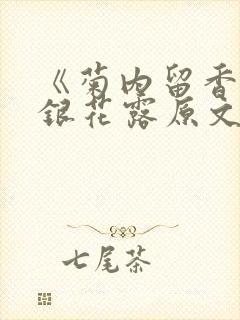 《菊内留香
银花露原文
七尾茶